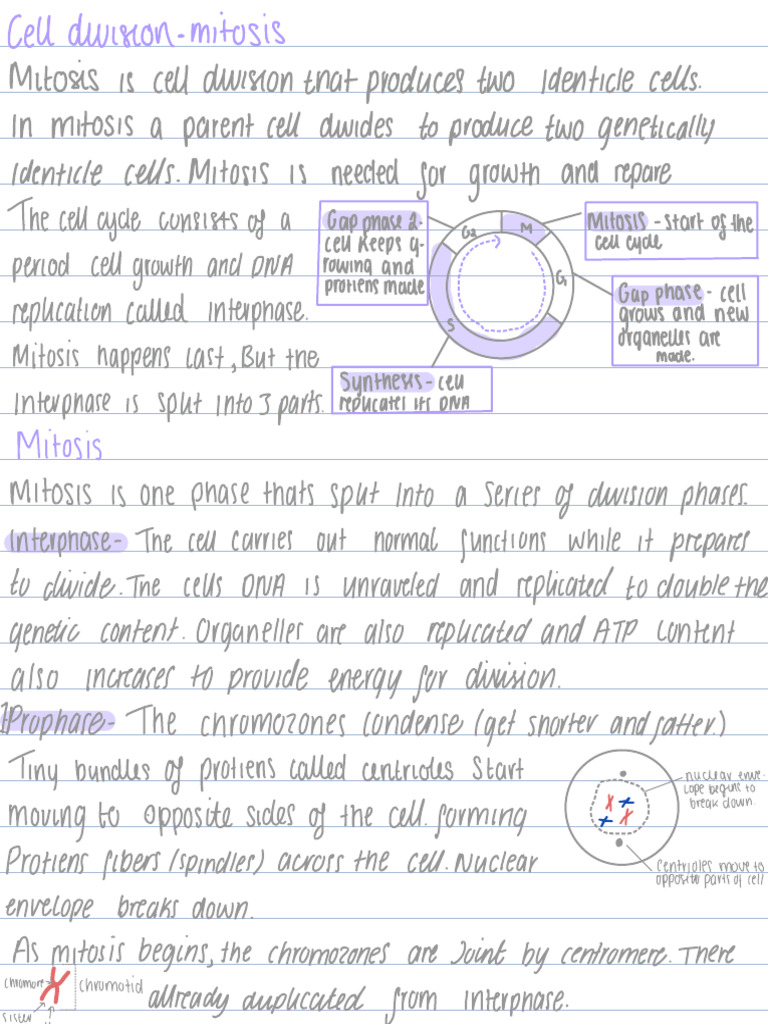 Cell division - mitosis
Mitosis is cell division that produces two identicle cells.
In mitosis a parent cell divides to produce two genetically
identicle cells. Mitosis is needed for growth and repare
The cell cycle consists of a
period cell growth and DNA
replication called interphase.
Mitosis happens last, But the
Interphase is split into 3 parts.
Gap phase 2-
cell keeps g-
rowing and
protiens made
G2
M
G
S
Mitosis - start of the
cell cycle
Gap phase - cell
grows and new
organelles are
made.
Synthesis - cell
replicates its DNA
Mitosis
Mitosis is one phase thats split into a series of division phases.
Interphase- The cell carries out normal functions while it prepares
to divide. The cells DNA is unraveled and replicated to double the
genetic content. Organelles are also replicated and ATP content
also increases to provide energy for division.
1)Prophase- The chromozones condense (get shorter and fatter.)
Tiny bundles of protiens called centrioles start
moving to opposite sides of the cell. forming
Protiens fibers (spindles) across the cell. Nuclear
envelope breaks down.
nuclear enve-
lope begins to
break down.
Centrioles move to
opposite parts of cell
As mitosis begins, the chromozones are joint by centromere. There
allready duplicated from interphase.
chromotid
sister